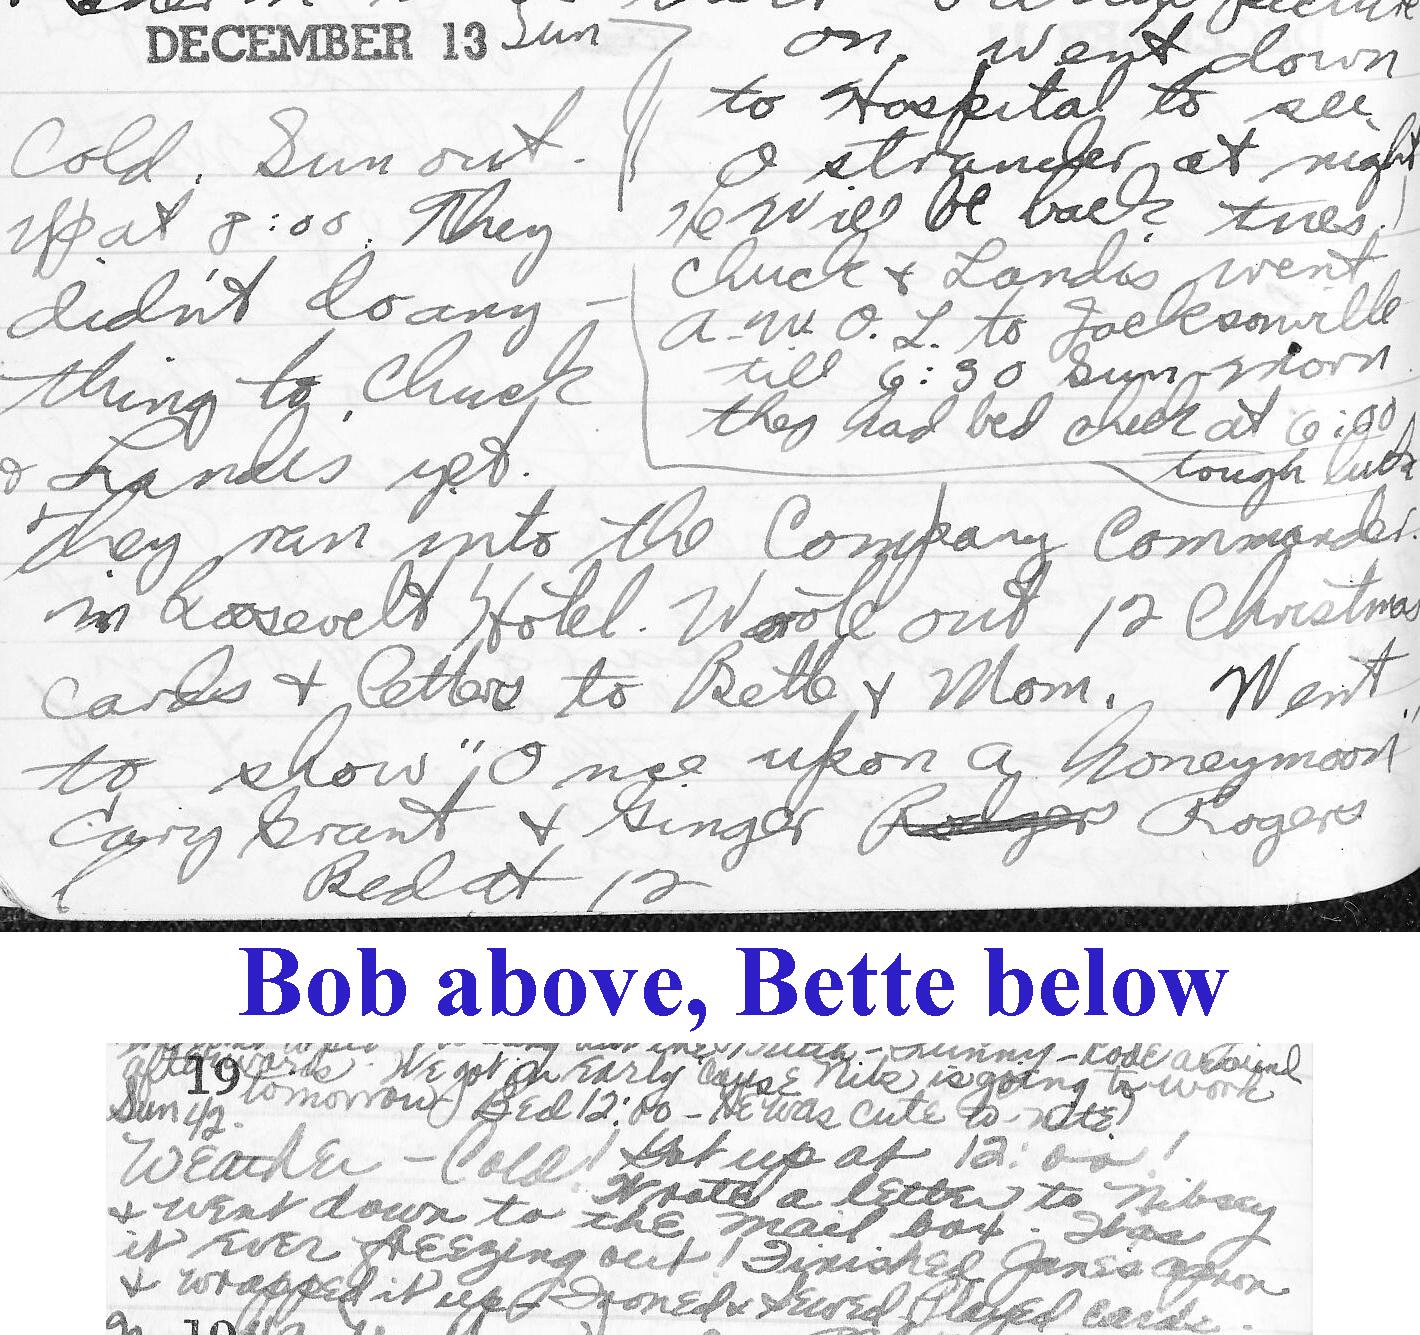 DECEMBER 13 Sun
on. Went down
to Hospital to see
O strander at night
He will be back tues.
Chuck & Landis went
A.W.O.L. to Jacksonville
till 6:30 Sun morn
they had bed check at 6:00
tough luck
Cold. Sun out.
Up at 8:00. They
didn't do any -
thing to Chuck
& Landis yet.
They ran into the Company Commander
in Roosevelt Hotel. Wrote out 12 Christmas
cards & letters to Bette & Mom. Went
to show "Once upon a honeymoon"
Cary Grant & Ginger Rodgers Rogers
Bed at 12
Bob above, Bette below
Funny - Rode around
afterwards. We got in Early cause Nibs is going to work
19 tomorrow Bed 12:00 - He was cute to-nite!
Sun 42.
Weather - Cold! Got up at 12:00!
Wrote a letter to Nibsey
& went down to the mail box. Was
it Ever freezing out! Finished Janes apron
& wrapped it up - Ironed & sewed Played cards.
19